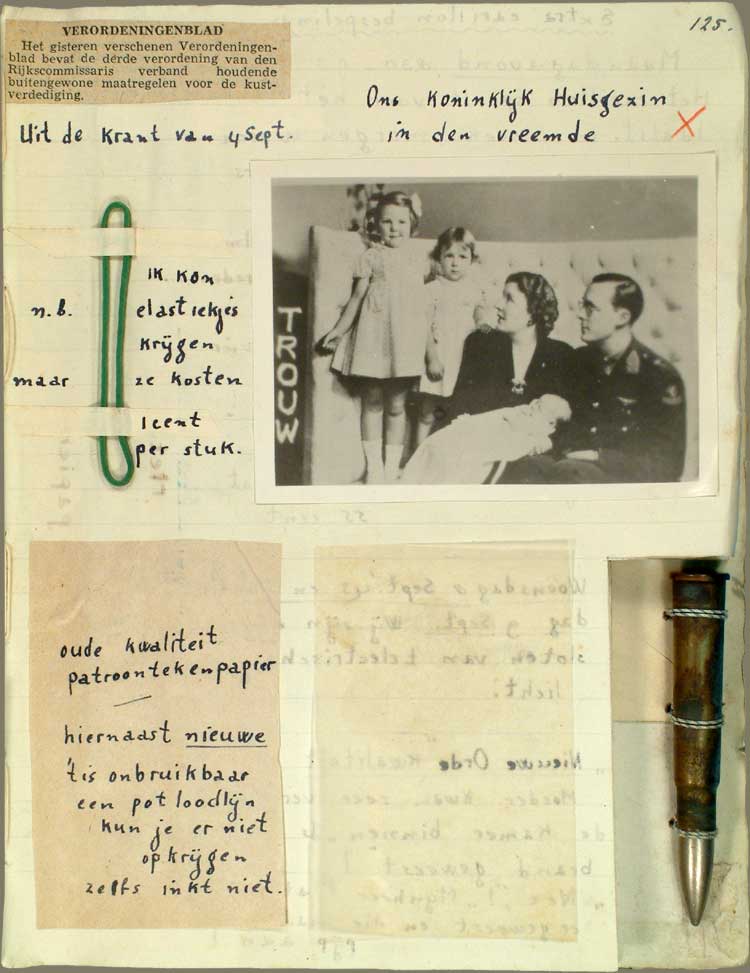 125.
VERORDENINGENBLAD
Het gisteren verschenen Verordeningen-
blad bevat de dérde verordening van den
Rijkscommissaris verband houdende
buitengewone maatregelen voor de kust-
verdediging.
Uit de krant van 4 Sept.
Ons Koninklijk Huisgezin
in den vreemde
TROUW
ik kon
n.b. elastiekjes
krijgen
maar ze kosten
1 cent
per stuk.
oude kwaliteit
patroontekenpapier
hiernaast nieuwe
'tis onbruikbaar
een potloodlijn
kun je er niet
op krijgen
zelfs inkt niet.
55 cent
Woensdag 8 Sept 43 en
dag 9 Sept. Wij zijn
sloten van electrisch
licht.
Nieuwe Orde kwaliteit